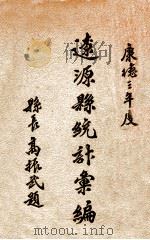 康德三年度
遼源縣統計彙編
縣長高振武題